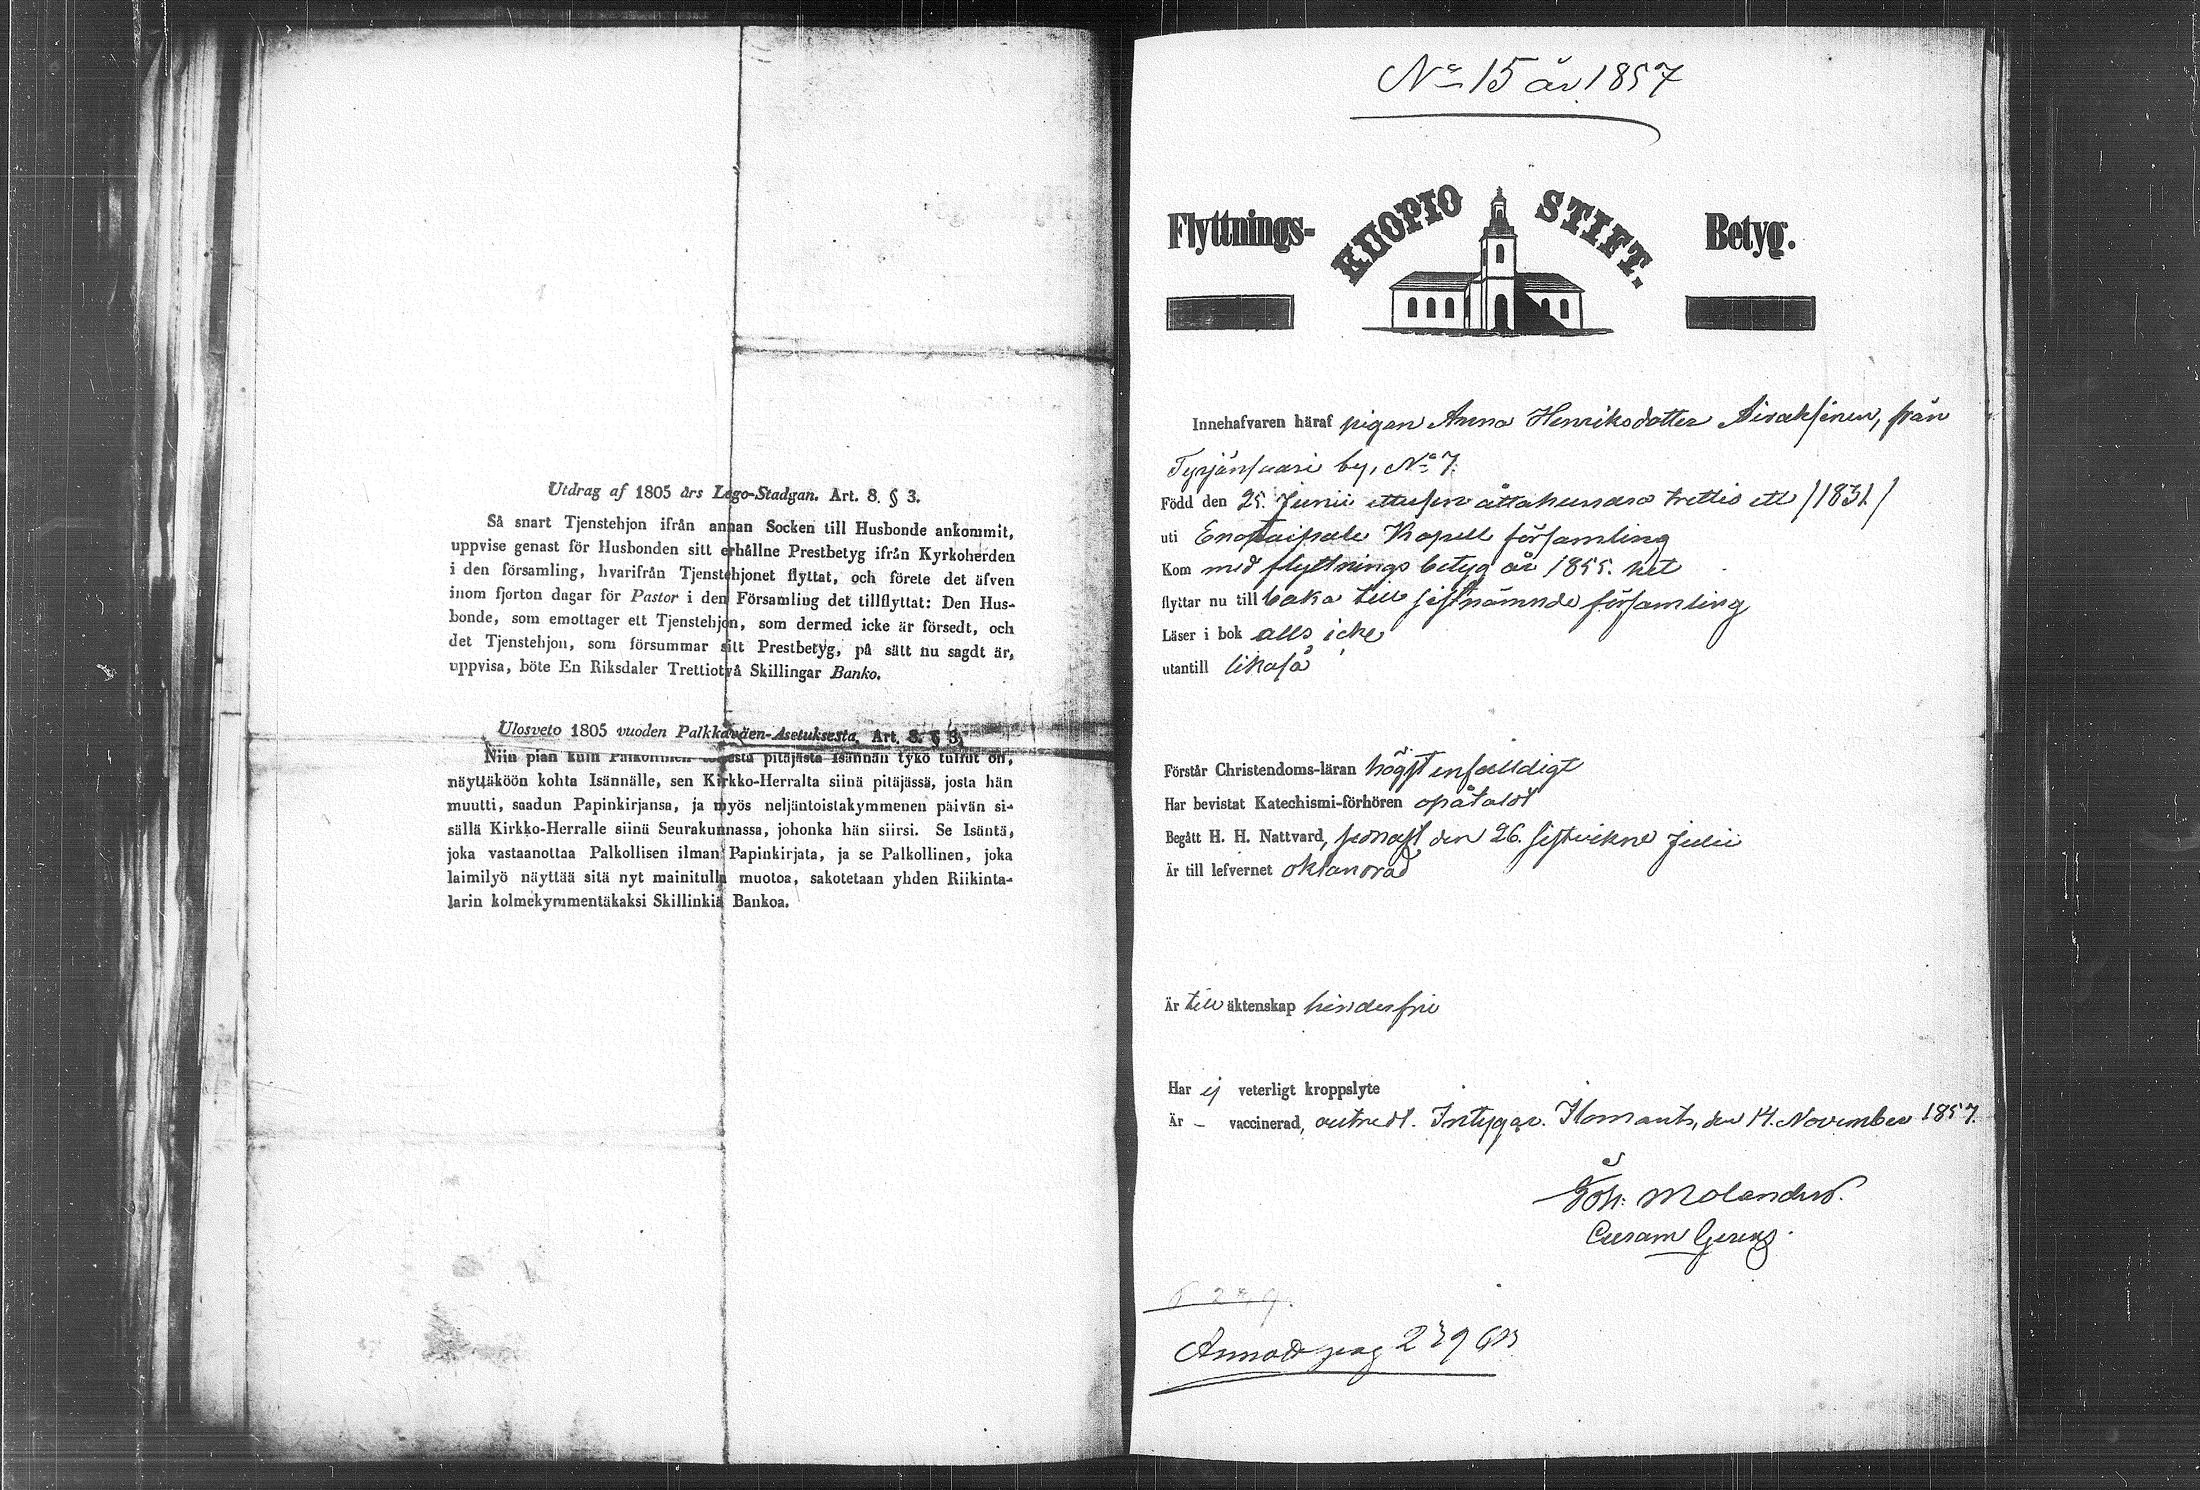 Utdrag af 1805 års Lego-Stadgan. Art. 8. § 3.
Så snart Tjenstehjon ifrån annan Socken till Husbonde ankommit,
uppvise genast för Husbonden sitt erhållne Prestbetyg ifrån Kyrkoherden
i den församling, hvarifrån Tjenstehjonet flyttat, och förete det äfven
inom fjorton dagar för Pastor i den Församling det tillflyttat: Den Hus-
bonde, som emottager ett Tjenstehjon, som dermed icke är försedt, och
det Tjenstehjon, som försummar sitt Prestbetyg, på sätt nu sagdt är,
uppvisa, böte En Riksdaler Trettiotvå Skillingar Banko.
Ulosveto 1805 vuoden Palkkaväen-Asetuksesta. Art. 8. § 3.
Niin pian kuin Palkollinen toisesta pitäjästä Isännän tykö tullut on,
näyttäköön kohta Isännälle, sen Kirkko-Herralta siinä pitäjässä, josta hän
muutti, saadun Papinkirjansa, ja myös neljäntoistakymmenen päivän si-
sällä Kirkko-Herralle siinä Seurakunnassa, johonka hän siirsi. Se Isäntä,
joka vastaanottaa Palkollisen ilman Papinkirjata, ja se Palkollinen, joka
laimilyö näyttää sitä nyt mainitulla muotoa, sakotetaan yhden Riikinta-
larin kolmekymmentäkaksi Skillinkiä Bankoa.
No 15 år 1857
Flyttnings- KUOPIO STIFT. Betyg.
Innehafvaren häraf pigan Anna Henriksdotter Airaksinen, från
Tyrjänsaari by, No 7.
Född den 25. Junii ettusen åttahundra trettio ett /1831/
uti Enontaipale Kapell församling
Kom med flyttnings betyg år 1855. het
flyttar nu tillbaka till sistnämnde församling
Läser i bok alls icke
utantill likaså
Förstår Christendoms-läran högst enfaldigt
Har bevistat Katechismi-förhören opåtaldt
Begått H. H. Nattvard, sednast den 26. sistvikne Julii
Är till lefvernet oklandrad
Är till äktenskap hinderfri
Har ej veterligt kroppslyte
Är – vaccinerad, Intygar. Ilomants, den 14. November 1857.
Joh. Molander.
Curam Gerens.
Annod pag 239